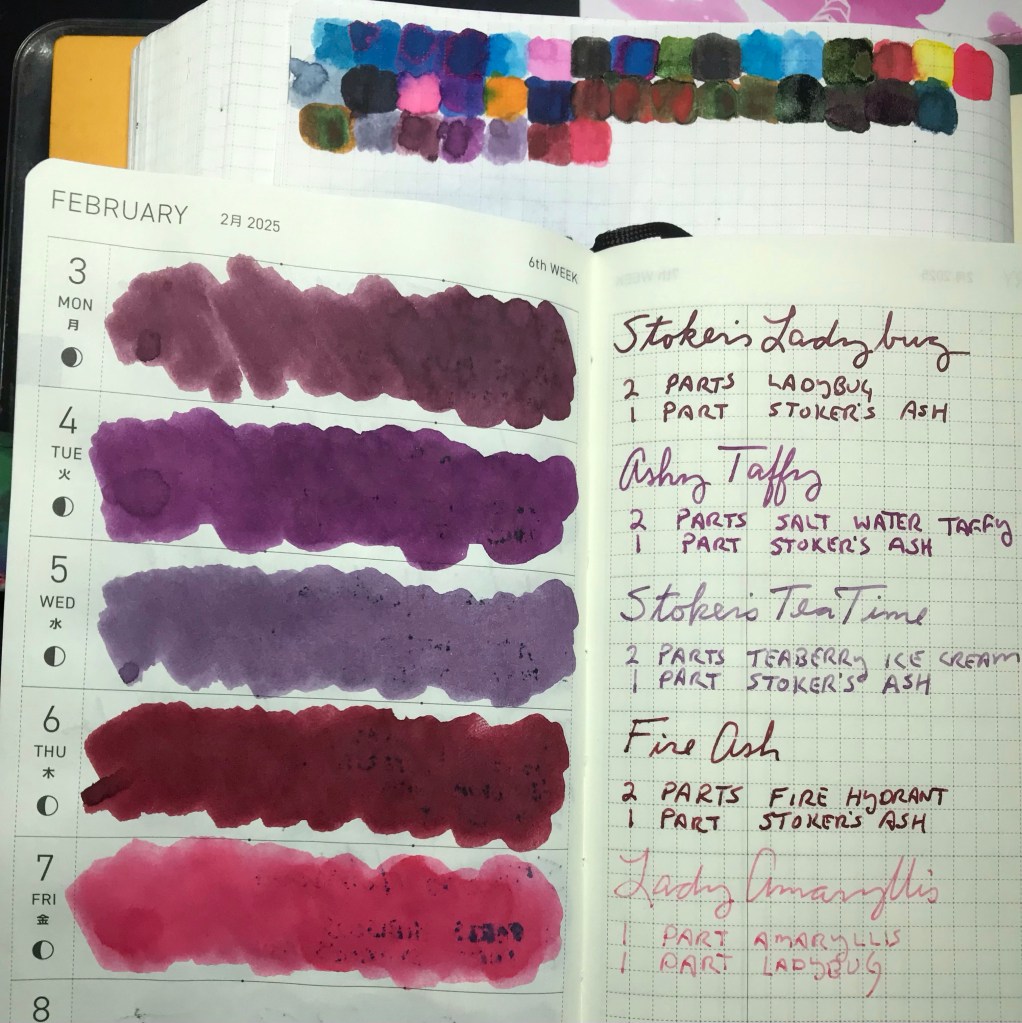 FEBRUARY 2月 2025
6th WEEK
3
MON
月
4
TUE
火
5
WED
水
6
THU
木
7
FRI
金
8
Stoker's Ladybug
2 PARTS LADYBUG
1 PART STOKER'S ASH
Ashy Taffy
2 PARTS SALT WATER TAFFY
1 PART STOKER'S ASH
Stoker's Tea Time
2 PARTS TEABERRY ICE CREAM
1 PART STOKER'S ASH
Fire Ash
2 PARTS FIRE HYDRANT
1 PART STOKER'S ASH
Lady Amaryllis
1 PART AMARYLLIS
1 PART LADYBUG